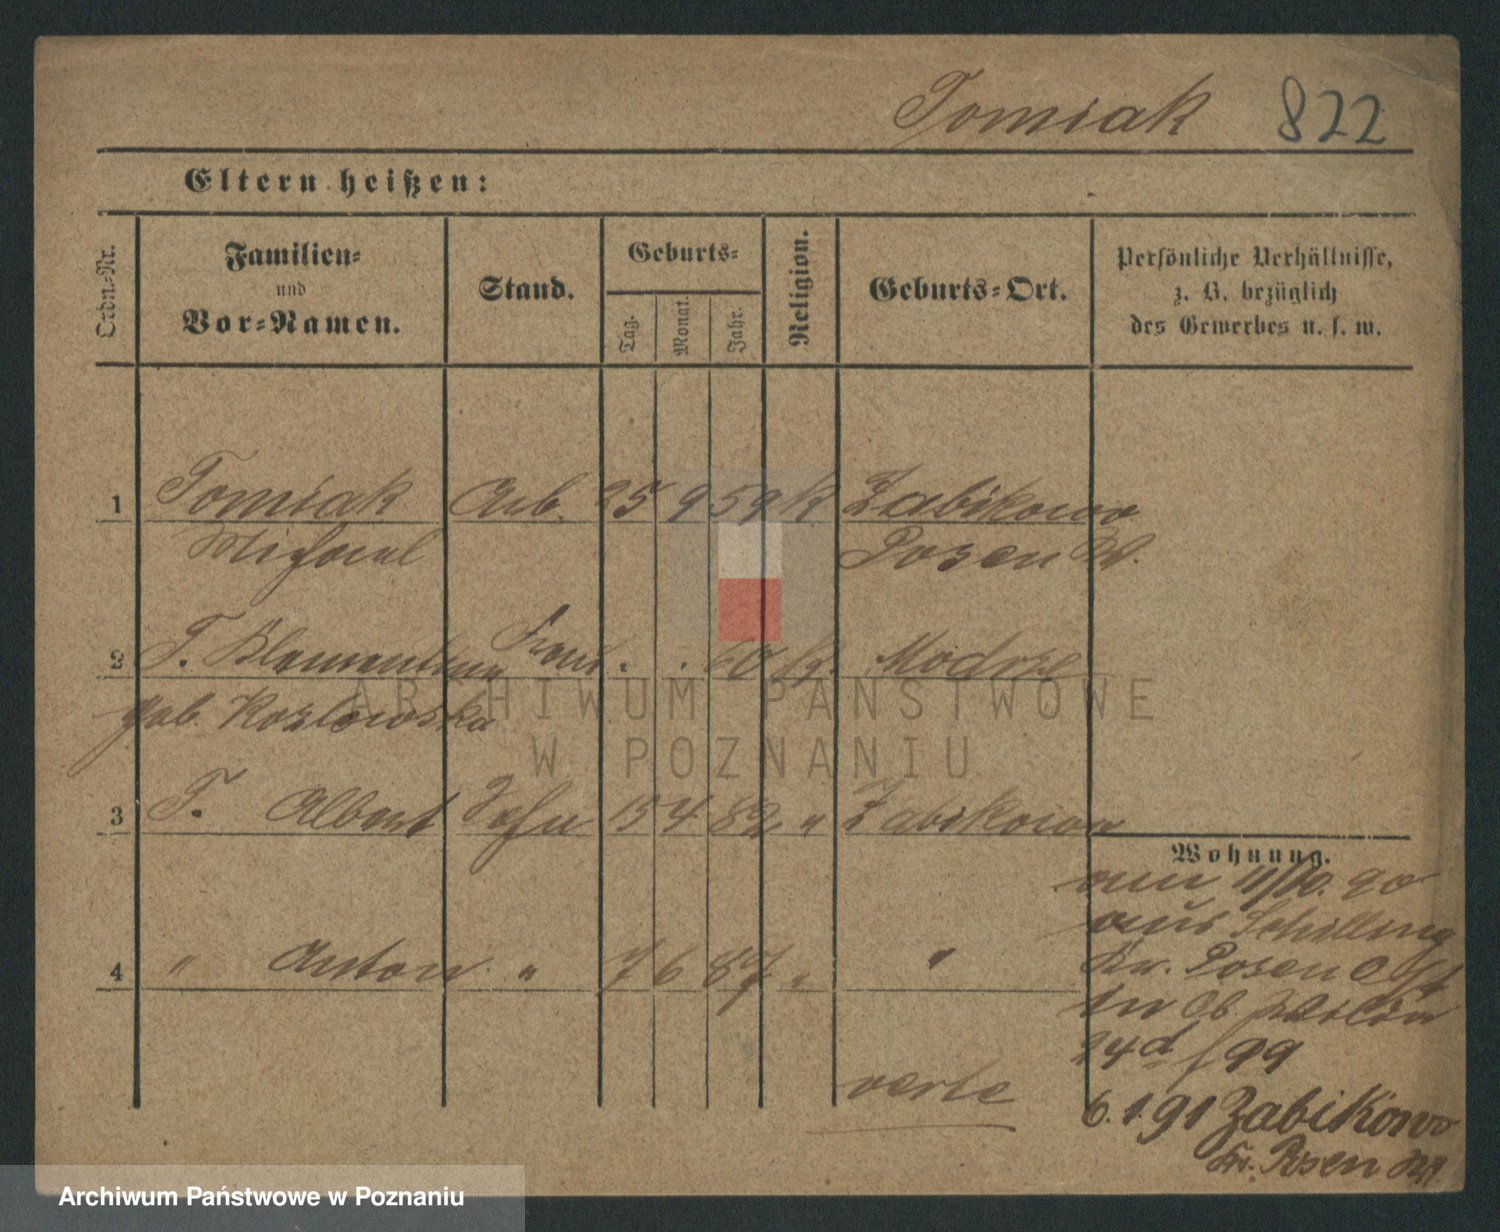 Tomiak 822
Eltern heißen:
Ordn.-Nr.
Familien-
und
Vor-Namen.
Stand.
Geburts-
Tag.
Monat.
Jahr.
Religion.
Geburts-Ort.
Persönliche Verhältnisse,
z. B. bezüglich
des Gewerbes u. s. w.
1 Tomiak Arb. 25 9 59 K Zabikowo
Michael Posen W.
2 T. Frau . . 60 K. Modrze
geb. Kozlowska
ARCHIWUM PAŃSTWOWE
W POZNANIU
3 T. Albert Sohn 15 4 82 " Zabikowo
Wohnung.
am 11/10. 90
aus Schilling
4 " Anton " 7 6 87 " "
Kr. Posen Ost
in Ob.
24d f 99
verte
6. 1. 91 Zabikowo
Kr. Posen
Archiwum Państwowe w Poznaniu